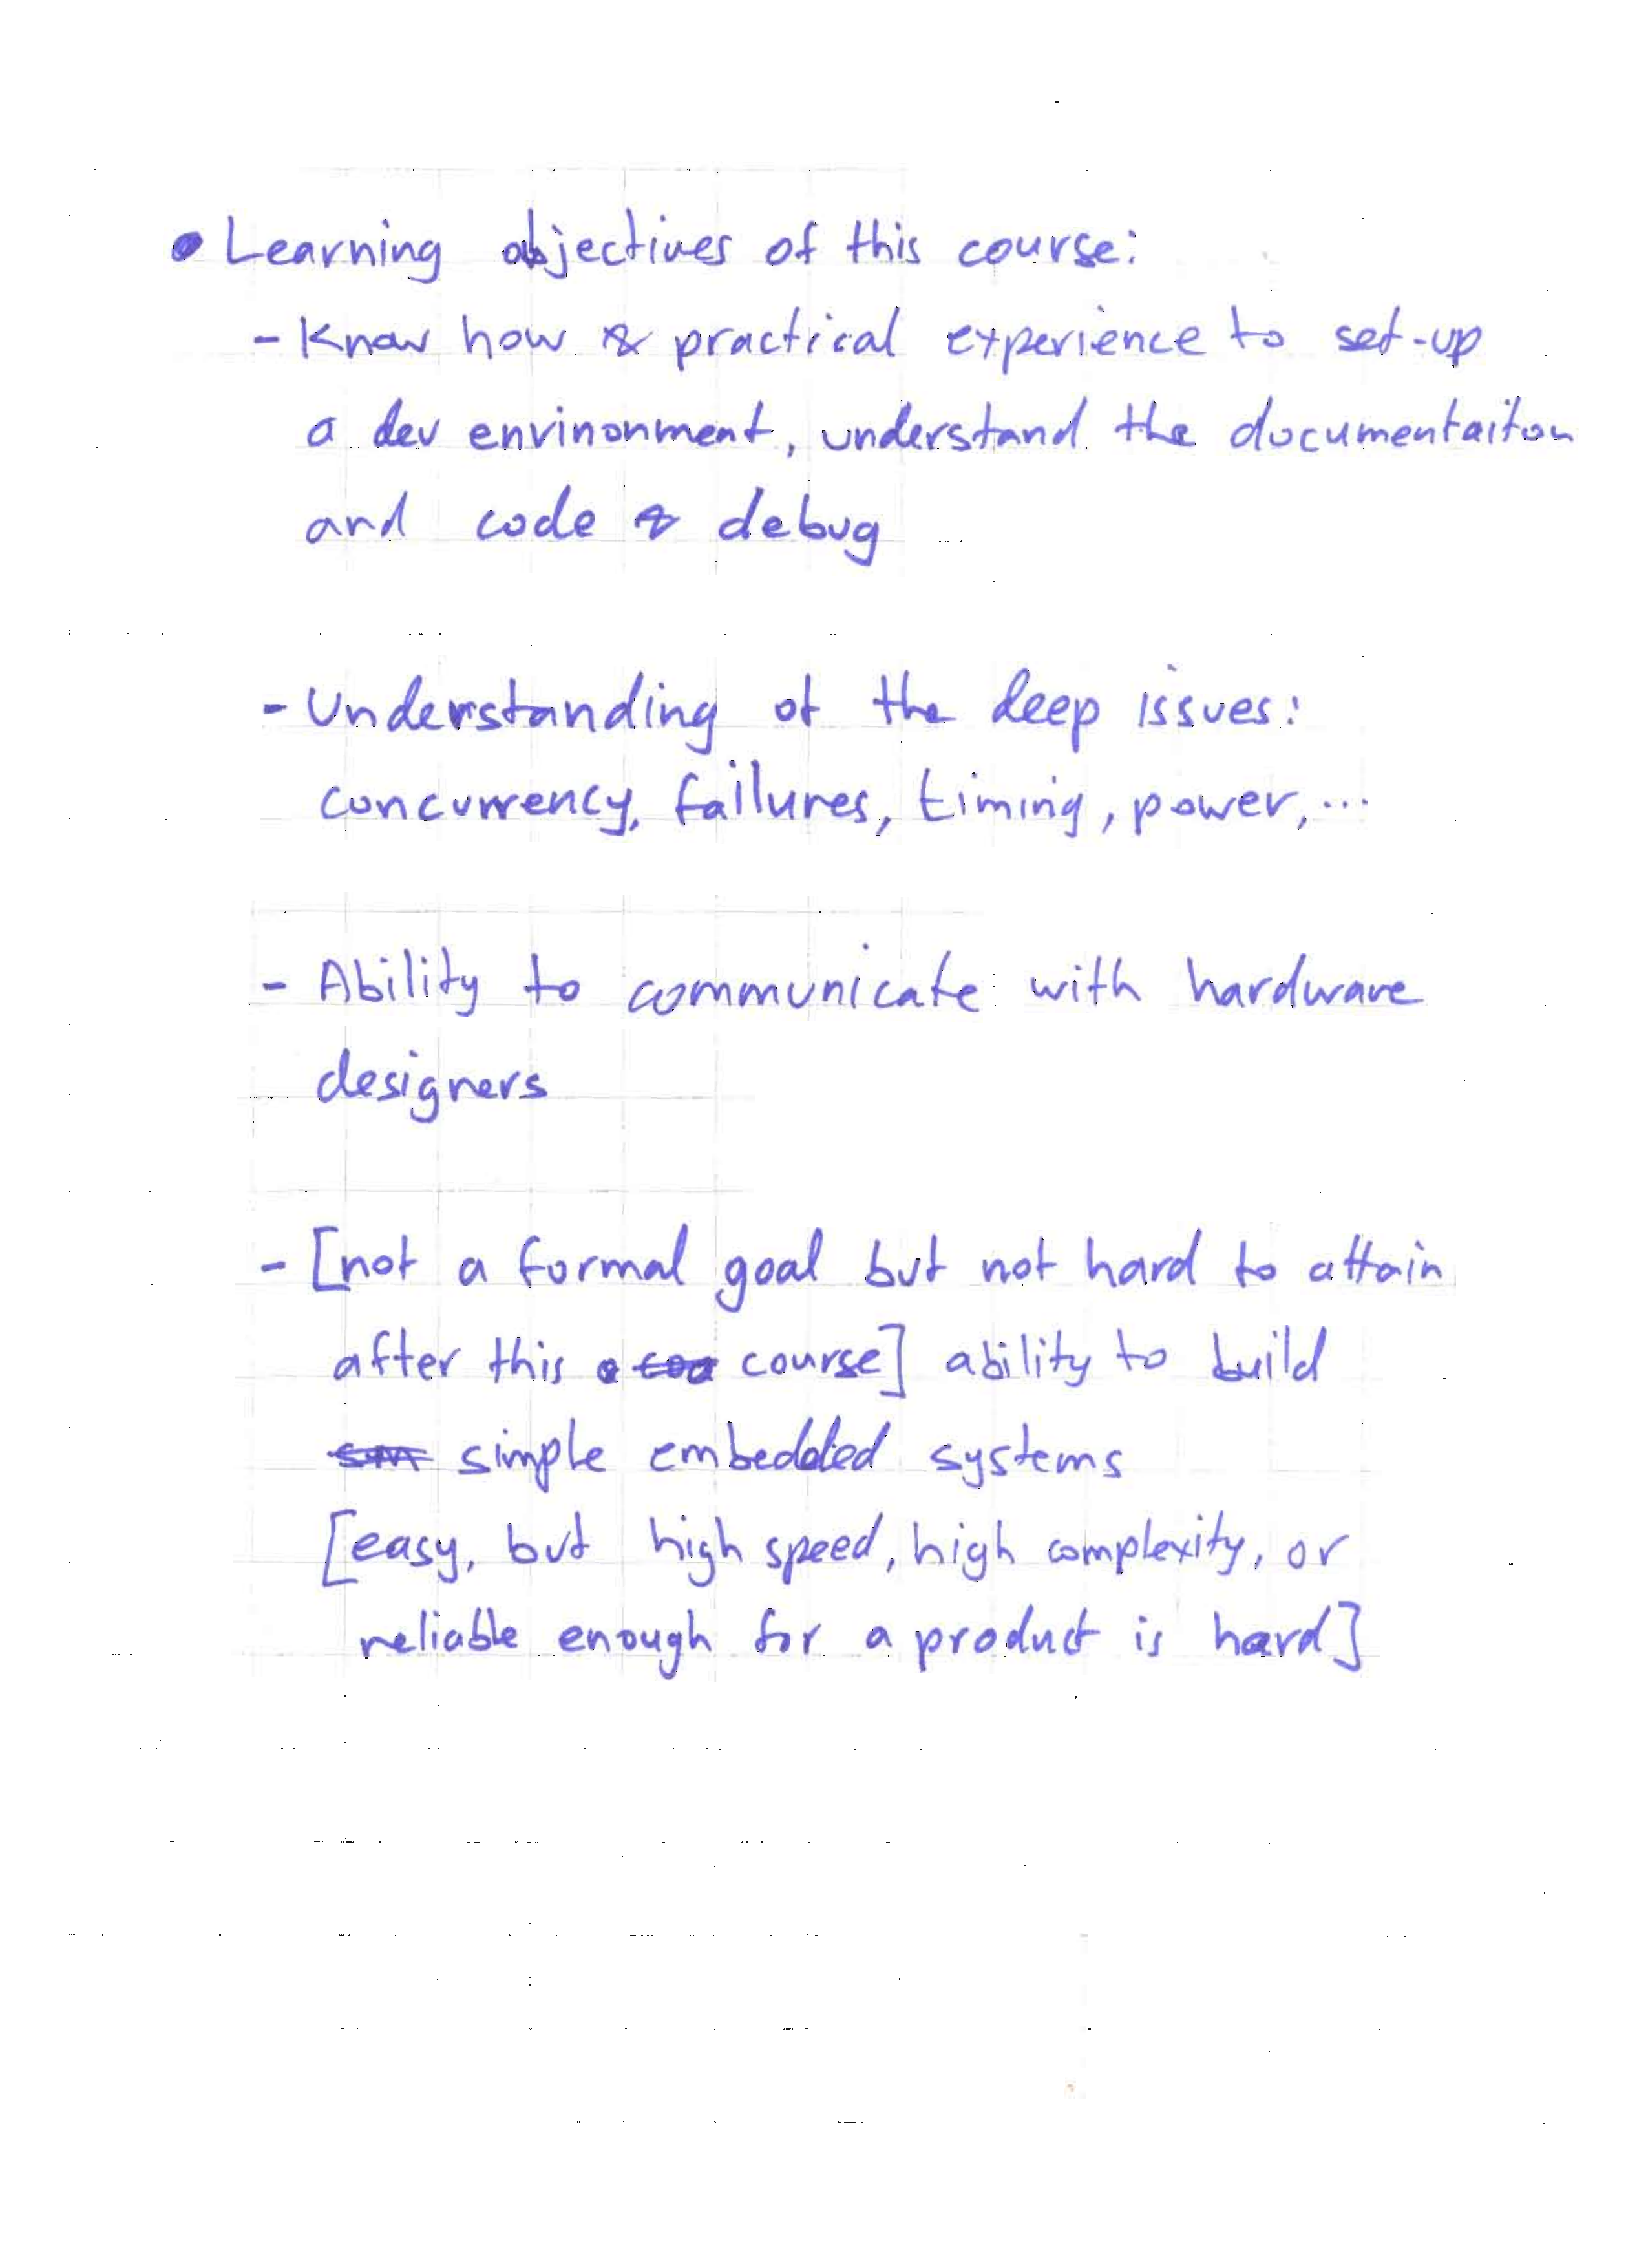 • Learning objectives of this course:
- Know how & practical experience to set-up
a dev envinonment, understand the documentaiton
and code & debug
- Understanding of the deep issues:
concurrency, failures, timing, power, ...
- Ability to communicate with hardware
designers
- [not a formal goal but not hard to attain
after this course] ability to build
simple embedded systems
[easy, but high speed, high complexity, or
reliable enough for a product is hard]